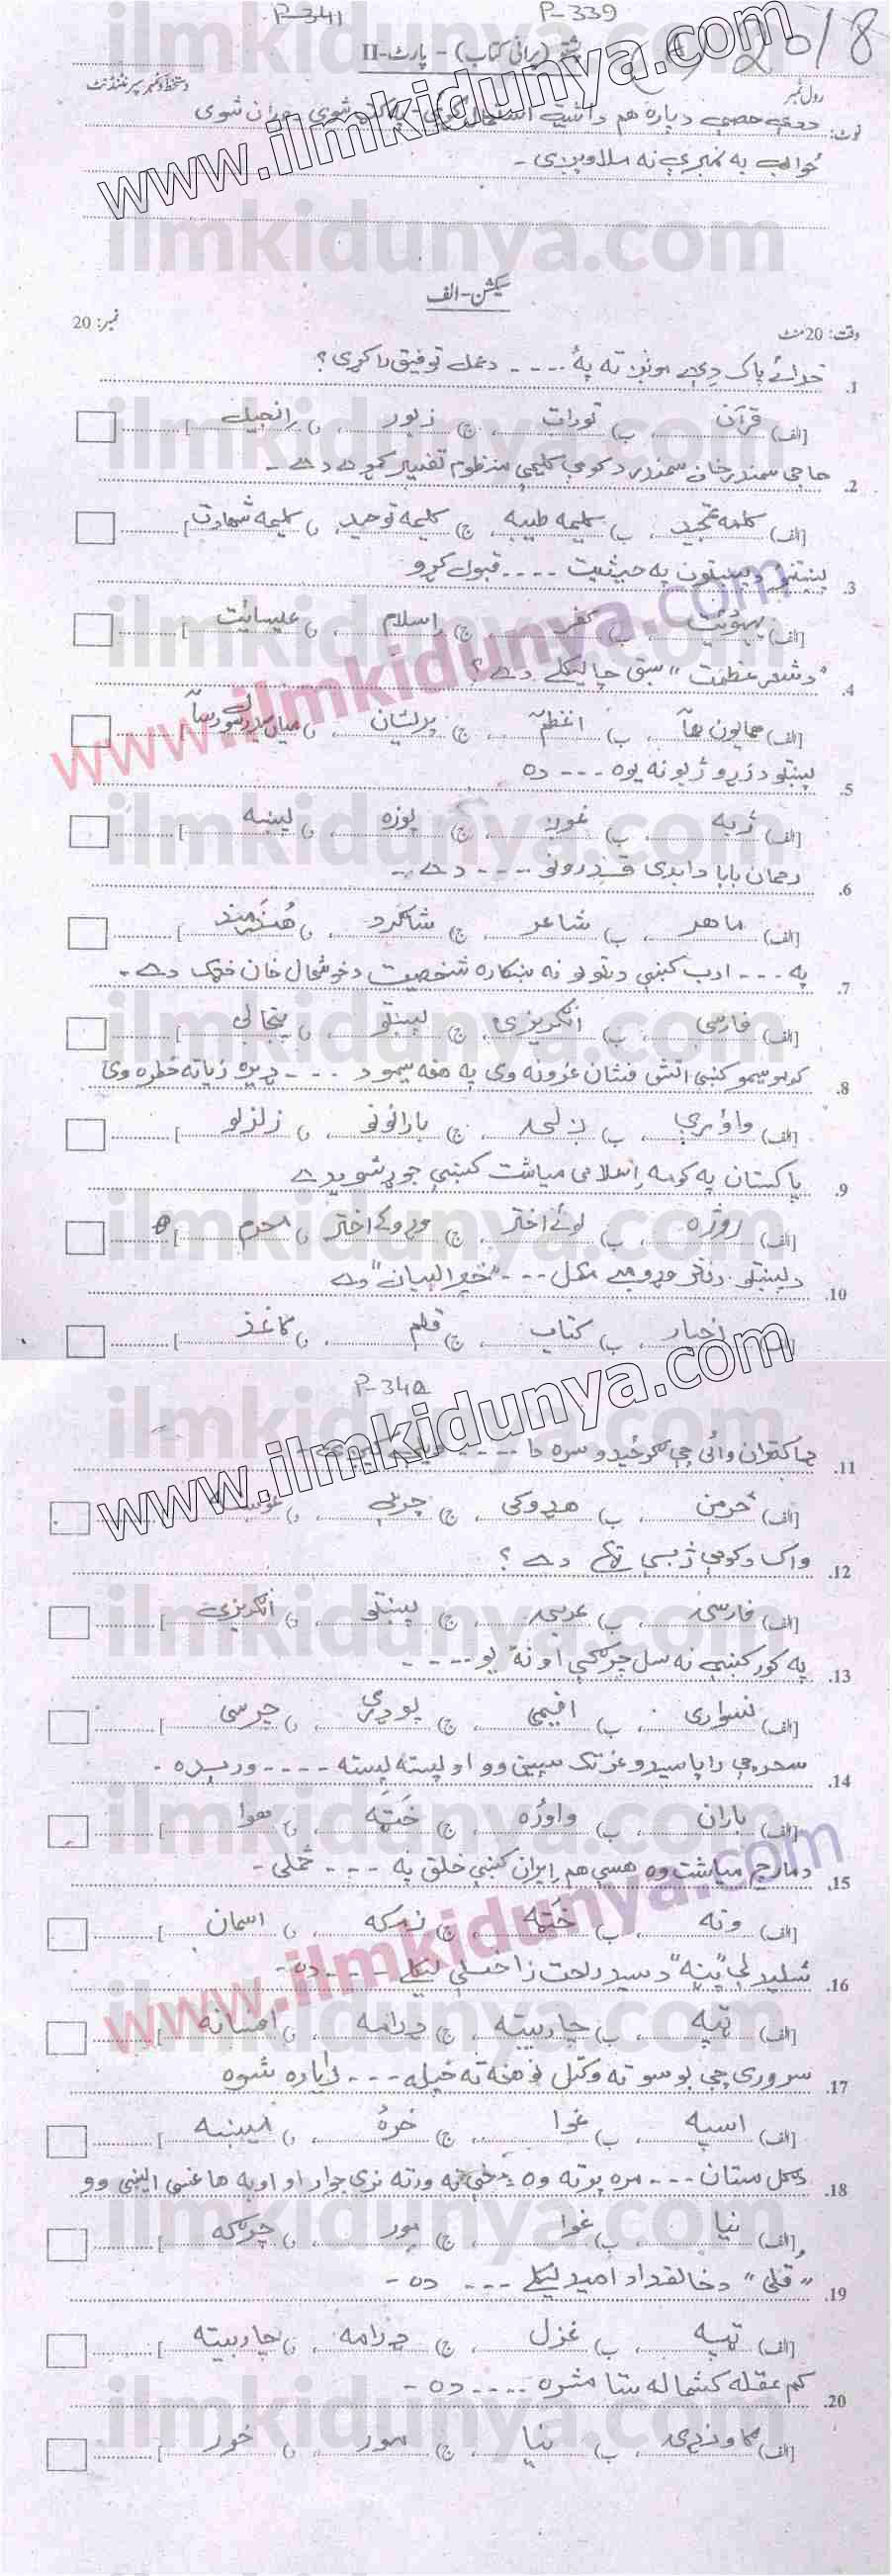 P-341 P-339
2018
پشتو (پرانی کتاب) - پارٹ-II
رول نمبر دستخط و مہر سپرنٹنڈنٹ
نوٹ: دې حصې دپاره هم دا شیټ استعمال کړئ - په کټ شوي وران شوي
ځواب به نمبرې نه ملاویږي -
سیکشن - الف
وقت: 20 منٹ نمبر: 20
1. خدائے پاک دې مونږ ته په ---- د عمل توفیق راکړی؟
[الف) قرآن ، ب) تورات ، ج) زبور ، د) انجیل ]
2. حاجی سمندر خان سمندر د کومې کلیمې منظوم تفسیر کړے دے -
[الف) کلمه تمجید ، ب) کلیمه طیبه ، ج) کلیمه توحید ، د) کلیمه شهادت ]
3. پښتنو د پښتون په حیثیت ---- قبول کړو
[الف) یهودیت ، ب) کفر ، ج) اسلام ، د) عیسائیت ]
4. "د شعر عظمت" سبق چا لیکلے دے؟
[الف) همایون هما ، ب) اعظم ، ج) پریشان ، د) میاں سید رسول رسا ]
5. پښتو د زړو ژبو نه یوه --- ده
[الف) ژبه ، ب) غوږ ، ج) پوزه ، د) پښه ]
6. رحمان بابا د ابدی قدرونو ---- دے -
[الف) ماهر ، ب) شاعر ، ج) شاګرد ، د) هنرمند ]
7. په --- ادب کښې د ټولو نه ښکاره شخصیت د خوشحال خان خټک دے -
[الف) فارسی ، ب) انګریزی ، ج) پښتو ، د) پنجابی ]
8. کومو سیمو کښې اتش فشان غرونه وی په هغه سیمو د ---- ډیره زیاته خطره وی
[الف) واؤرې ، ب) ږلۍ ، ج) بارانونو ، د) زلزلو ]
9. پاکستان په کومه اسلامی میاشت کښې جوړ شوے دے
[الف) روژه ، ب) لوئے اختر ، ج) وړوکے اختر ، د) محرم ]
10. د پښتو د نثر وړومبے مکمل --- "خیر البیان" دے
[الف) اخبار ، ب) کتاب ، ج) قلم ، د) کاغذ ]
P-342
11. ډاکټران وائی چې سره د
[الف) څرمن ، ب) هډوکی ، ج) چربی ، د) غوښه ]
12. واک د کومې ژبې ټکے دے؟
[الف) فارسی ، ب) عربی ، ج) پښتو ، د) انګریزی ]
13. په کور کښې نه سل چرګې او نه یو ----
[الف) نسواری ، ب) افیمی ، ج) پوډری ، د) چرسی ]
14. سحر چې راپاسیدو غر تک سپین وو او لپسته لپسته ---- وریده .
[الف) باران ، ب) واوره ، ج) خټه ، د) هوا ]
15. د مارچ میاشت وه هسې هم ایران کښې خلق په --- څملی -
[الف) ونه ، ب) خټه ، ج) زمکه ، د) اسمان ]
16. شلیدلې "پڼه" د سید راحت زاخیلی لیکلے ---- ده -
[الف) ټپه ، ب) چاربیته ، ج) ډرامه ، د) افسانه ]
17. سروری چې بوسو ته وکتل نو هغه ته خپله --- رایاده شوه
[الف) اسپه ، ب) غوا ، ج) خره ، د) میښه ]
18. ګل ستان --- مره پرته وه څې ته ورته نری جوار او اوبه هاغسې ایښې وو
[الف) نیا ، ب) غوا ، ج) مور ، د) چرګه ]
19. "قلی" د خالقداد امید لیکلے --- ده -
[الف) ټپه ، ب) غزل ، ج) ډرامه ، د) چاربیته ]
20. کم عقله کشماله ستا مشره ---- ده -
[الف) ګاونډی ، ب) نیا ، ج) مور ، د) خور ]
www.ilmkidunya.com
ilmkidunya.com